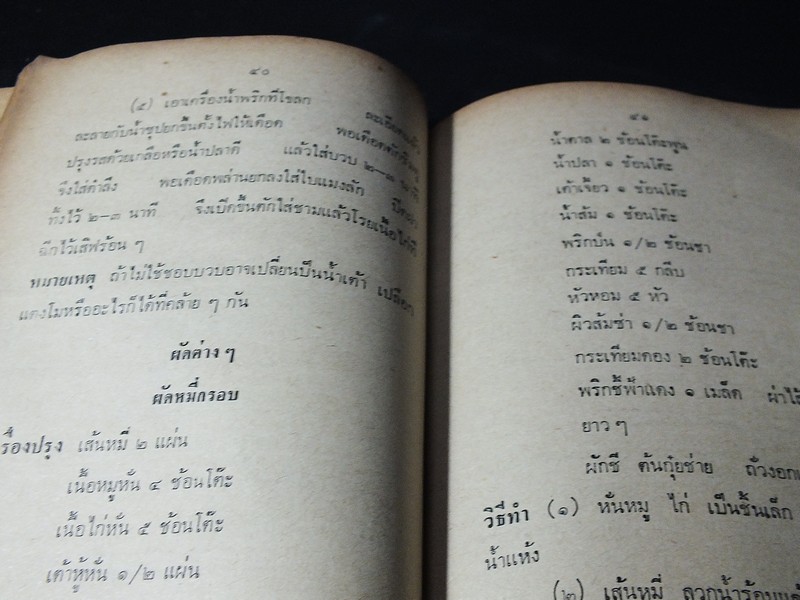 ๔๐
(๕) เอาเครื่องน้ำพริกที่โขลก ละเอียดแล้ว
ละลายกับน้ำซุปยกขึ้นตั้งไฟให้เดือด พอเดือดตักชิมดู
ปรุงรสด้วยเกลือหรือน้ำปลาดี แล้วใส่บวบ ๒-๓
จึงใส่ตำลึง พอเดือดพล่านยกลงใส่ใบแมงลัก ปิดฝา
ทิ้งไว้ ๒-๓ นาที จึงเปิดขึ้นตักใส่ชามแล้วโรยเนื้อไก่ที่
ฉีกไว้เสิฟร้อน ๆ
หมายเหตุ ถ้าไม่ใช้ชอบบวบอาจเปลี่ยนเป็นน้ำเต้า เปลือก
แตงโมหรืออะไรก็ได้ที่คล้าย ๆ กัน
ผัดต่าง ๆ
ผัดหมี่กรอบ
รื่องปรุง เส้นหมี่ ๒ แผ่น
เนื้อหมูหั่น ๔ ช้อนโต๊ะ
เนื้อไก่หั่น ๕ ช้อนโต๊ะ
เต้าหู้หั่น ๑/๒ แผ่น
๔๑
น้ำตาล ๒ ช้อนโต๊ะพูน
น้ำปลา ๑ ช้อนโต๊ะ
เต้าเจี้ยว ๑ ช้อนโต๊ะ
น้ำส้ม ๑ ช้อนโต๊ะ
พริกป่น ๑/๒ ช้อนชา
กระเทียม ๕ กลีบ
หัวหอม ๕ หัว
ผิวส้มซ่า ๑/๒ ช้อนชา
กระเทียมดอง ๒ ช้อนโต๊ะ
พริกชี้ฟ้าแดง ๑ เมล็ด ผ่า
ยาว ๆ
ผักชี ต้นกุ๋ยช่าย ถั่วงอก
วิธีทำ (๑) หั่นหมู ไก่ เป็นชิ้นเล็ก
น้ำแห้ง
(๒) เส้นหมี่ ลวกน้ำร้อน